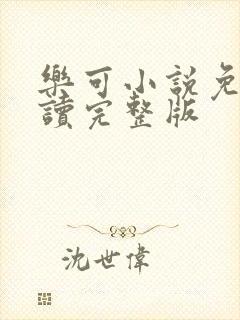 樂可小説免
讀完整版
沈世偉